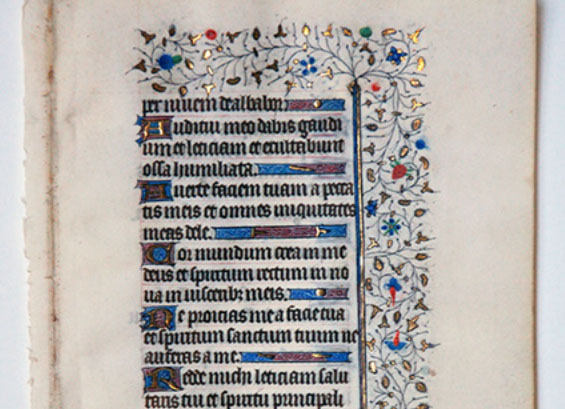 per niuem dealbabor.
Auditui meo dabis gaudi
um et leticiam et exultabunt
ossa humiliata.
Auerte faciem tuam a pecca
tis meis et omnes iniquitates
meas dele.
Cor mundum crea in me
deus et spiritum rectum in no
ua in uisceribꝫ meis.
Ne proicias me a facie tua
et spiritum sanctum tuum ne
auferas a me.
Redde michi leticiam salu
taris tui et spiritu principali